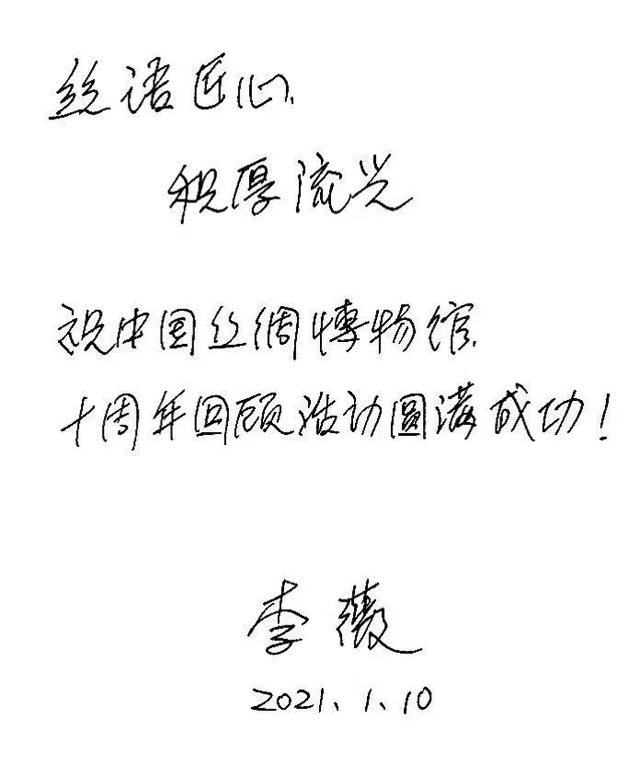 丝语匠心、
积厚流光
祝中国丝绸博物馆、
十周年回顾活动圆满成功！
李薇
2021、1、10